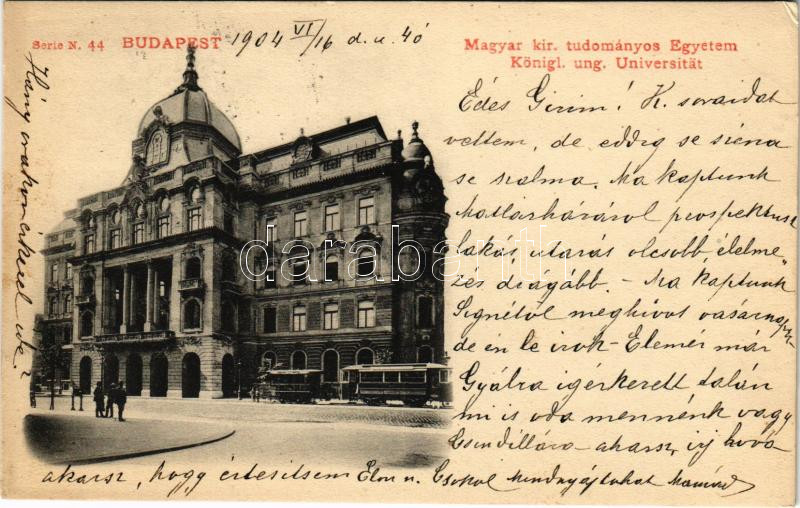 Serie N. 44 BUDAPEST 1904 VI/16 d. u. 40
Magyar kir. tudományos Egyetem
Königl. ung. Universität
Édes Girim! K. soraidat
vettem, de eddig se széna
se szalma. Ma kaptunk
Matlárházáról prospektust
lakás, utazás olcsóbb, élelme-
zés drágább. - Ma kaptunk
meghívót vasárnap
de én le írok - Elemér már
Gyálra igérkezett talán
mi is oda mennénk vagy
akarsz, irj hová
akarsz, hogy értesítsem
Csókol Mindnyájtokat
Hány órakor
darabanth.com